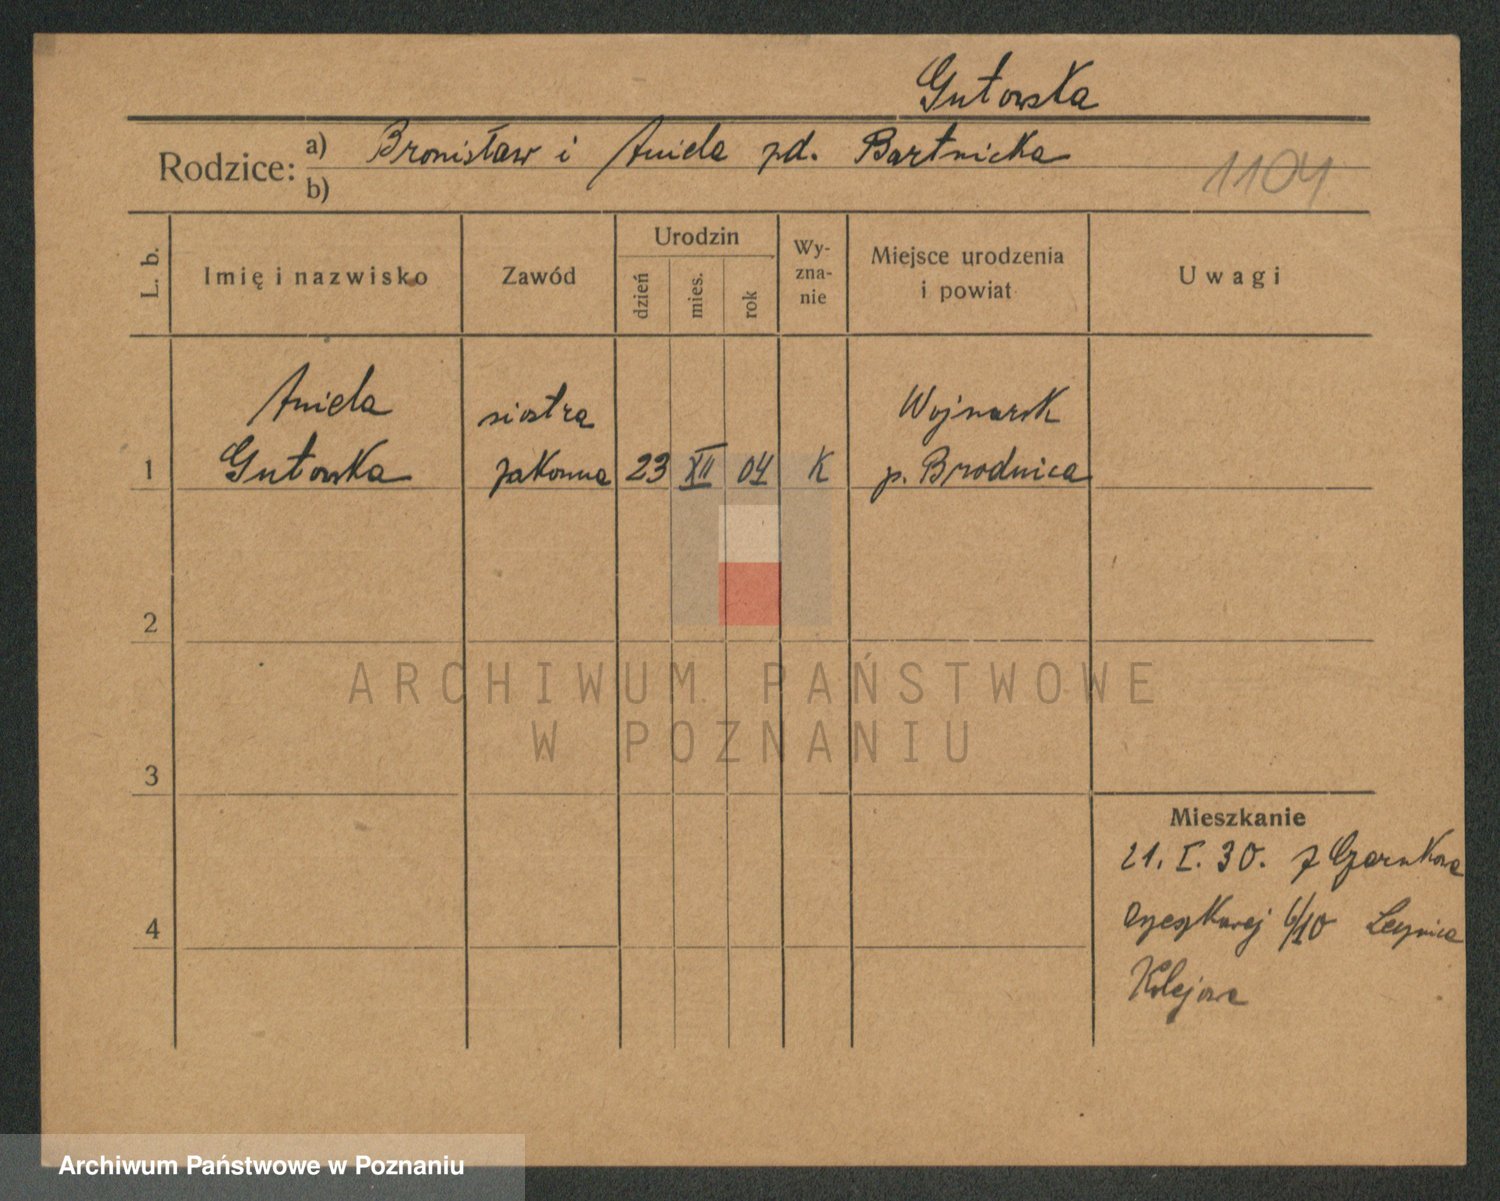 Gutowska
Rodzice: a) Bronisław i Aniela zd. Bartnicka
b)
1104
L. b.
Imię i nazwisko
Zawód
Urodzin
dzień
mies.
rok
Wy-
zna-
nie
Miejsce urodzenia
i powiat
Uwagi
Aniela siostra Wojnarsk
1 Gutowska zakonna 23 XII 04 K p. Brodnica
2
ARCHIWUM PAŃSTWOWE
W POZNANIU
3
Mieszkanie
21. I. 30. z Czarnkowa
4
6/10
Kolejowa
Archiwum Państwowe w Poznaniu